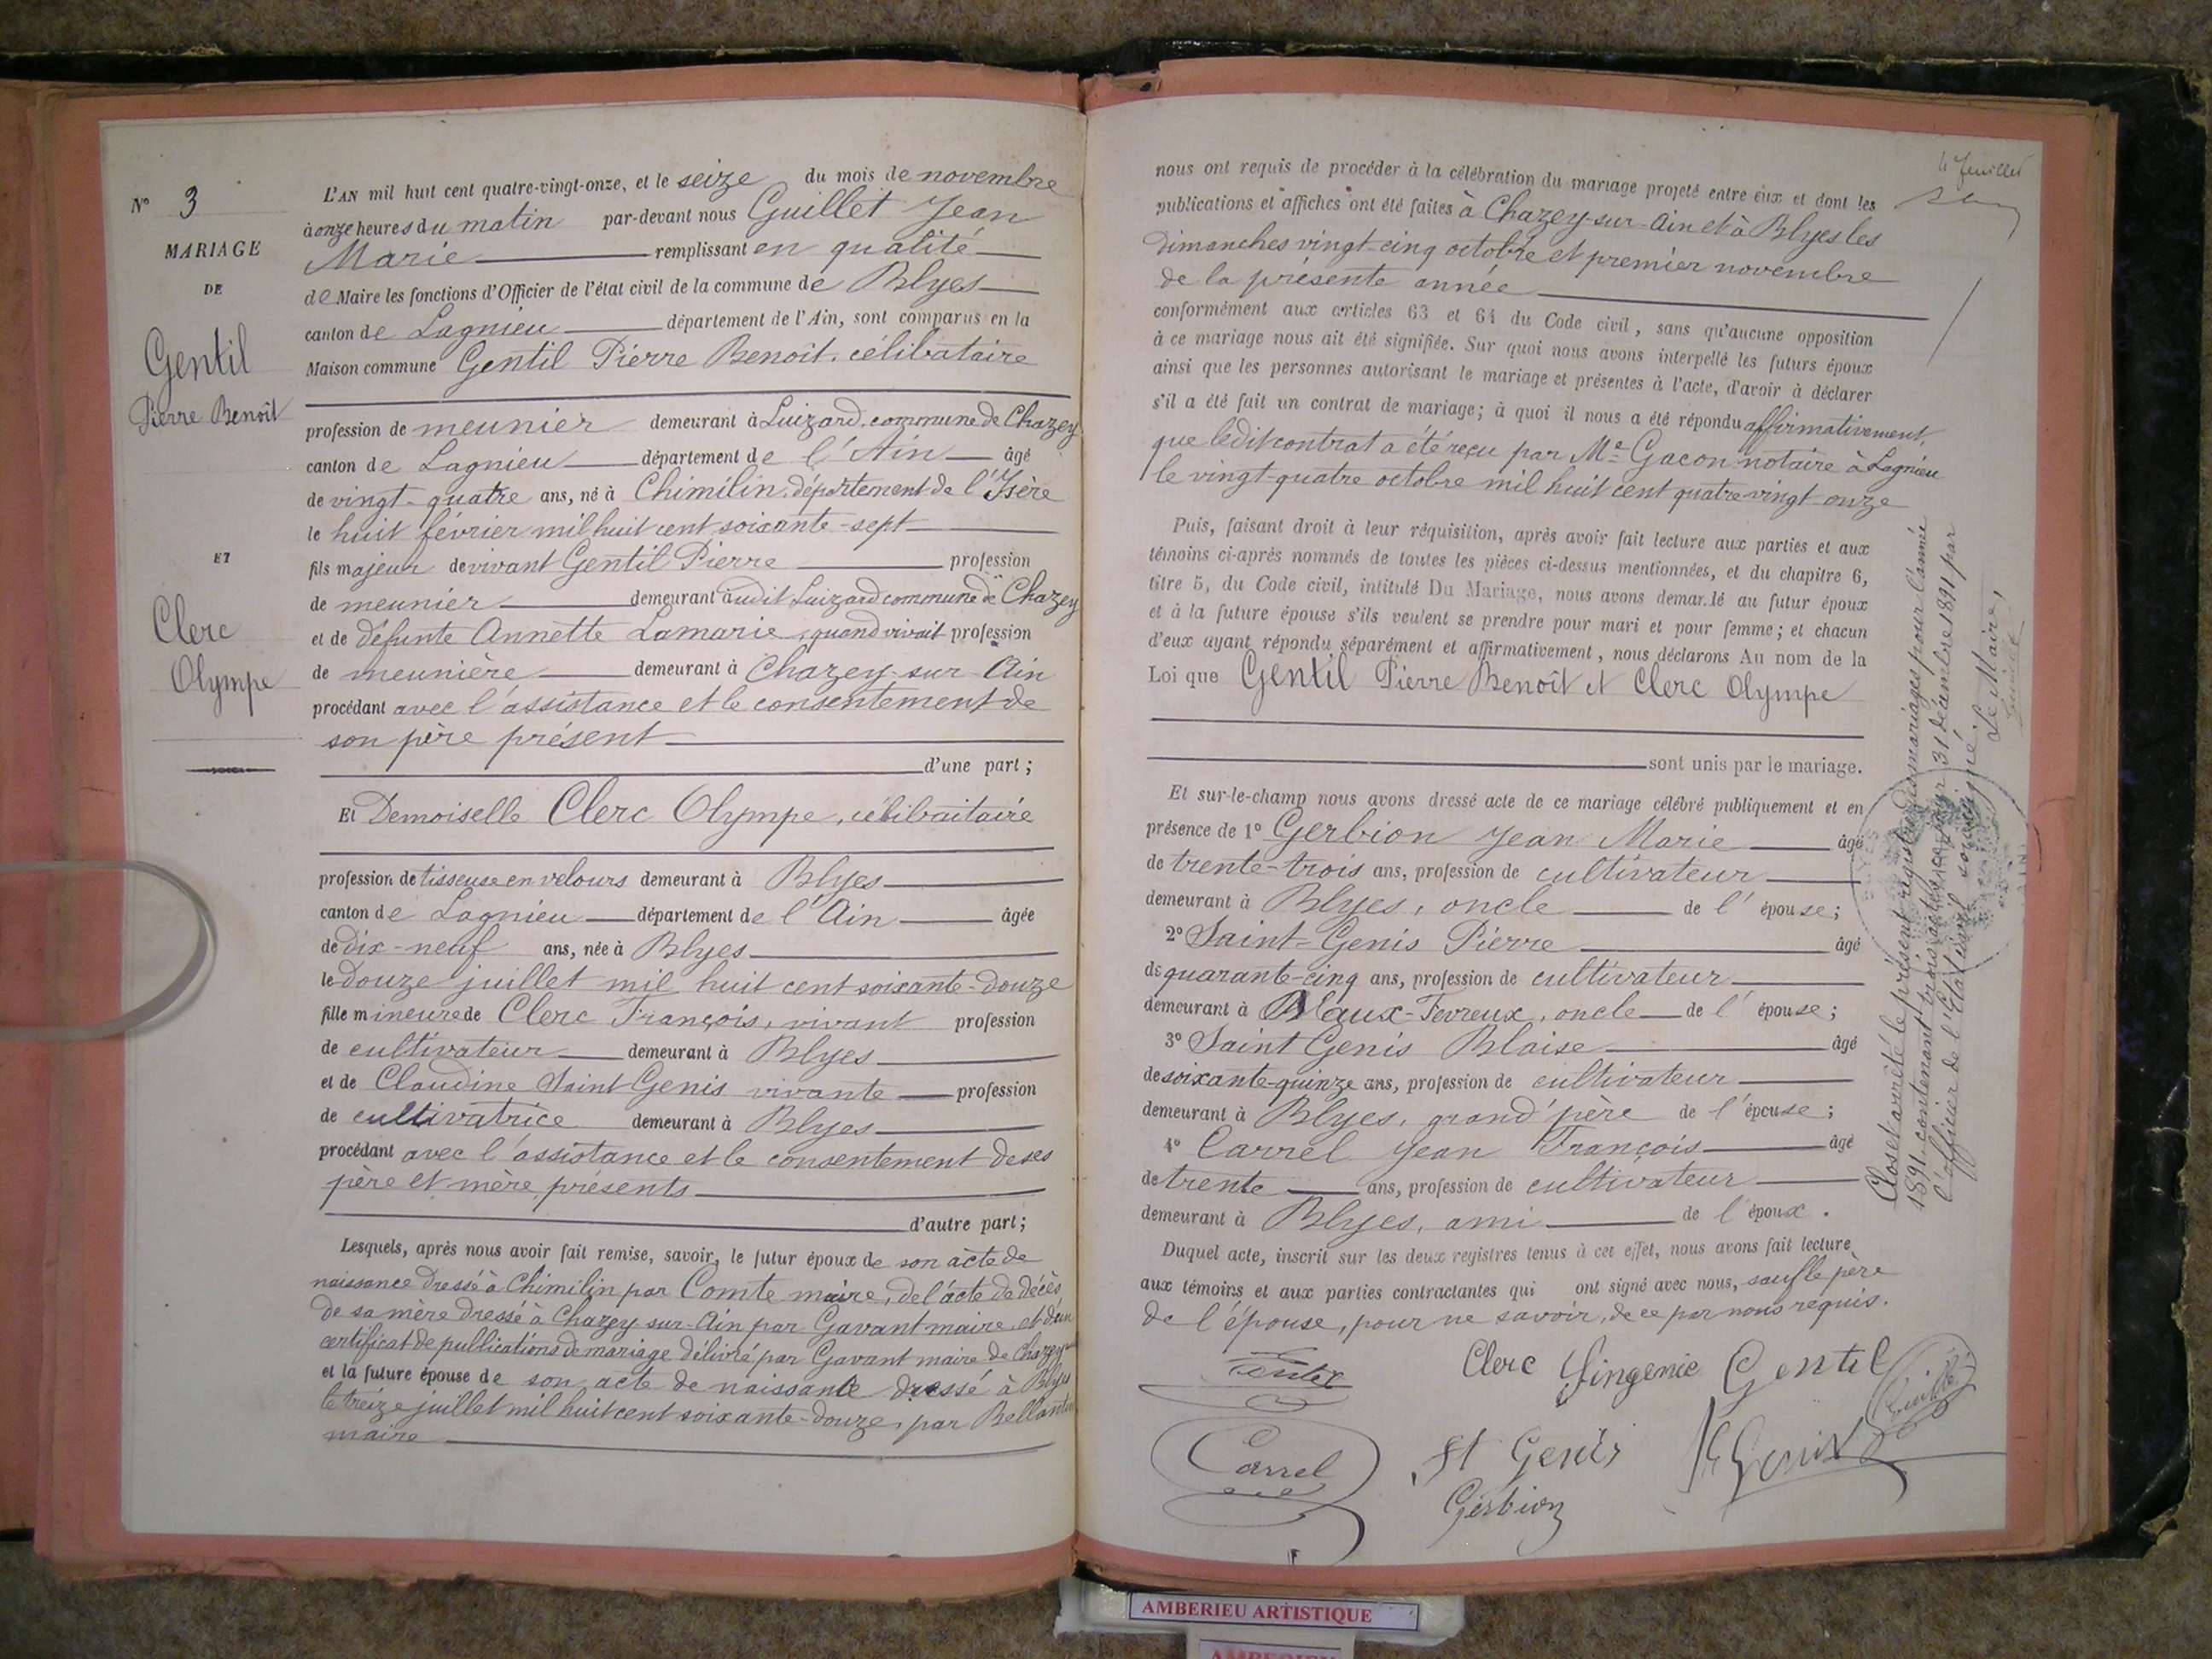 N° 3
MARIAGE
DE
Gentil
Pierre Benoît
ET
Clerc
Olympe
L'AN mil huit cent quatre-vingt-onze, et le seize du mois de novembre
à onze heures du matin par-devant nous Guillet Jean
Marie remplissant en qualité
de Maire les fonctions d'Officier de l'état civil de la commune de Blyes
canton de Lagnieu département de l'Ain, sont comparus en la
Maison commune Gentil Pierre Benoit, célibataire
profession de meunier demeurant à Luizard, commune de Chazey
canton de Lagnieu département de l'Ain âgé
de vingt-quatre ans, né à Chimilin, département de l'Isère
le huit février mil huit cent soixante-sept
fils majeur de vivant Gentil Pierre profession
de meunier demeurant audit Luizard commune de Chazey
et de défunte Annette Lamarie, quand vivait profession
de meunière demeurant à Chazey-sur-Ain
procédant avec l'assistance et le consentement de
son père présent
d'une part;
Et Demoiselle Clerc Olympe, célibaitaire
profession de tisseuse en velours demeurant à Blyes
canton de Lagnieu département de l'Ain âgée
de dix-neuf ans, née à Blyes
le douze juillet mil huit cent soixante-douze
fille mineure de Clerc François, vivant profession
de cultivateur demeurant à Blyes
et de Claudine Saint Genis vivante profession
de cultivatrice demeurant à Blyes
procédant avec l'assistance et le consentement de ses
père et mère présents
d'autre part;
Lesquels, après nous avoir fait remise, savoir, le futur époux de son acte de
naissance dressé à Chimilin par Comte maire, de l'acte de décès
de sa mère dressé à Chazey-sur-Ain par Gavant maire et d'un
certificat de publications de mariage délivré par Gavant maire de Chazey
et la future épouse de son acte de naissance dressé à Blyes
le treize juillet mil huit cent soixante-douze, par
maire
4e feuillet
nous ont requis de procéder à la célébration du mariage projeté entre eux et dont les
publications et affiches ont été faites à Chazey-sur-Ain et à Blyes les
dimanches vingt-cinq octobre et premier novembre
de la présente année
conformément aux articles 63 et 64 du Code civil, sans qu'aucune opposition
à ce mariage nous ait été signifiée. Sur quoi nous avons interpellé les futurs époux
ainsi que les personnes autorisant le mariage et présentes à l'acte, d'avoir à déclarer
s'il a été fait un contrat de mariage; à quoi il nous a été répondu affirmativement,
que ledit contrat a été reçu par Me Gacon notaire à Lagnieu
le vingt-quatre octobre mil huit cent quatre vingt onze
Puis, faisant droit à leur réquisition, après avoir fait lecture aux parties et aux
témoins ci-après nommés de toutes les pièces ci-dessus mentionnées, et du chapitre 6,
titre 5, du Code civil, intitulé Du Mariage, nous avons demandé au futur époux
et à la future épouse s'ils veulent se prendre pour mari et pour femme; et chacun
d'eux ayant répondu séparément et affirmativement, nous déclarons Au nom de la
Loi que Gentil Pierre Benoît et Clerc Olympe
sont unis par le mariage.
Et sur-le-champ nous avons dressé acte de ce mariage célébré publiquement et en
présence de 1° Gerbion Jean Marie âgé
de trente-trois ans, profession de cultivateur
demeurant à Blyes, oncle de l'épouse;
2° Saint-Genis Pierre âgé
de quarante-cinq ans, profession de cultivateur
demeurant à Vaux-Fevreux, oncle de l'épouse;
3° Saint Genis Blaise âgé
de soixante-quinze ans, profession de cultivateur
demeurant à Blyes, grand'père de l'épouse;
4° Carrel Jean François âgé
de trente ans, profession de cultivateur
demeurant à Blyes, ami de l'époux.
Duquel acte, inscrit sur les deux registres tenus à cet effet, nous avons fait lecture
aux témoins et aux parties contractantes qui ont signé avec nous, sauf le père
de l'épouse, pour ne savoir, de ce par nous requis.
Clerc Gentil
Guillet
Carrel
St Genis
St Genis
Gerbion
Clos et arrêté le présent registre des mariages pour l'année
1891 contenant trois actes ce jour 31 décembre 1891 par
l'officier de l'Etat civil soussigné.
Le Maire,
Guillet
AMBERIEU ARTISTIQUE
AMBERIEU